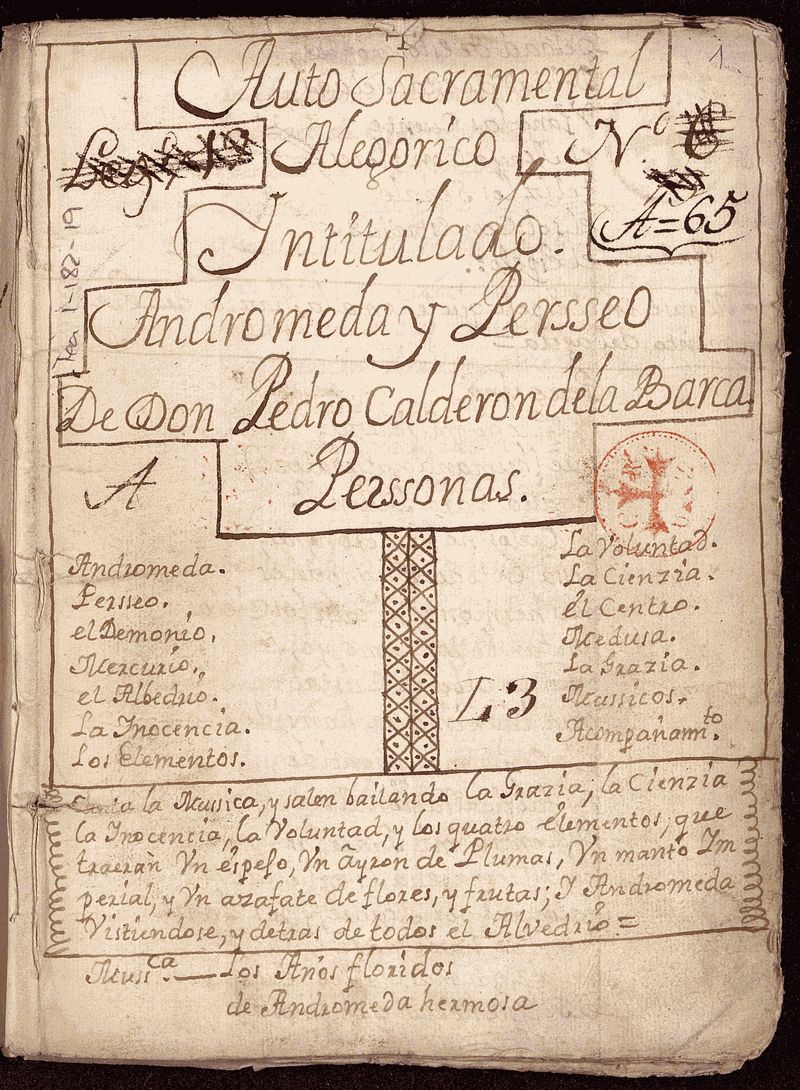 1
Auto Sacramental
Alegorico
N.º 6
A=65
Yntitulado.
Andromeda y Persseo
De Don Pedro Calderon dela Barca
Perssonas.
A
Tea 1-182-19
Andromeda.
Persseo.
el Demonio.
Mercurio.
el Albedrio.
La Inocencia.
Los Elementos.
La Voluntad.
La Cienzia.
el Centro.
Medusa.
La Grazia.
Mussicos.
Acompañamto.
L3
Canta la Mussica, y salen bailando la Grazia, la Cienzia
la Inocencia, la Voluntad, y los quatro elementos, que
traeràn Vn espejo, Vn ayron de Plumas, Vn manto Im
perial, y Vn azafate de flores, y frutas; Y Andromeda
Vistiendose, y detras de todos el Alvedrio=
Mussca.—Los Años floridos
de Andromeda hermosa